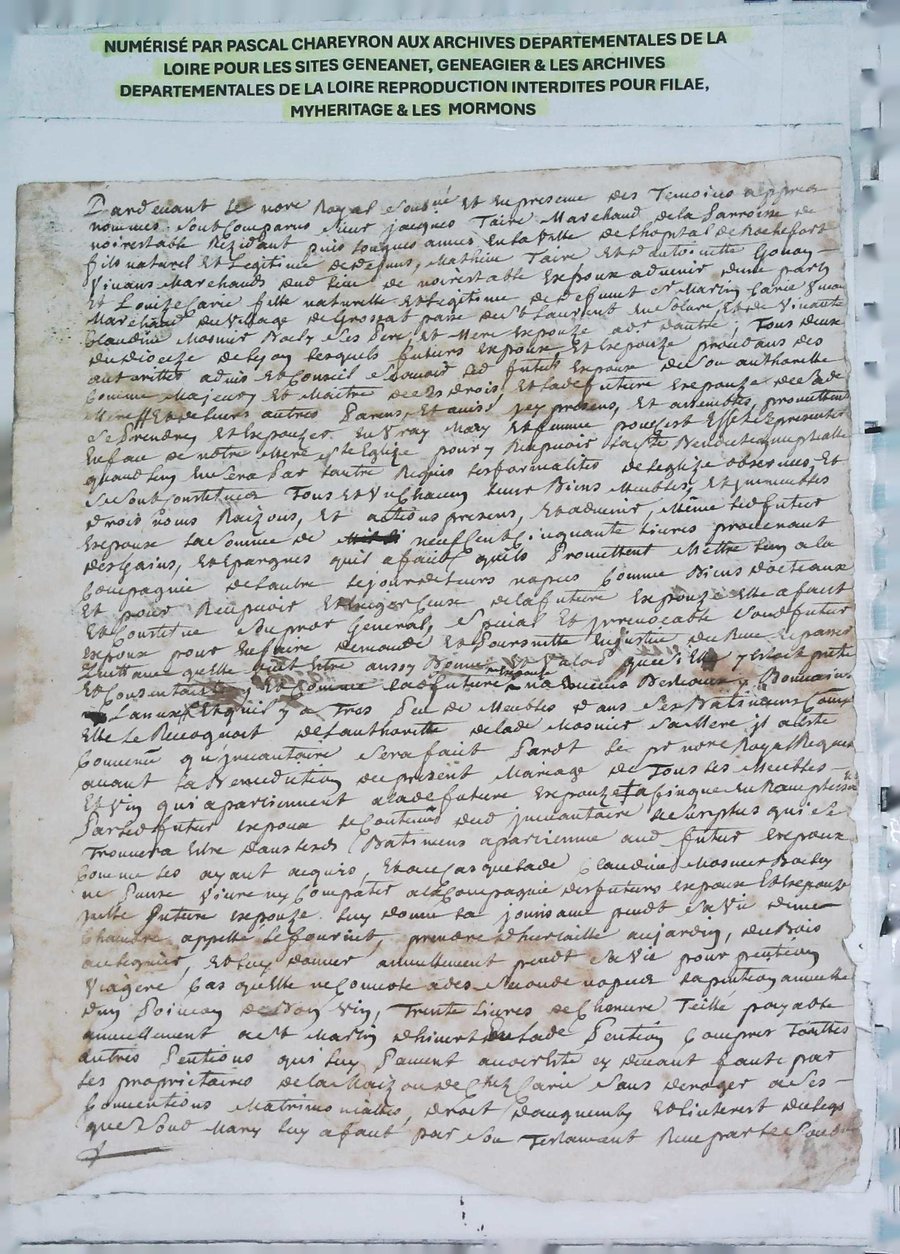 NUMÉRISÉ PAR PASCAL CHAREYRON AUX ARCHIVES DEPARTEMENTALES DE LA
LOIRE POUR LES SITES GENEANET, GENEAGIER & LES ARCHIVES
DEPARTEMENTALES DE LA LOIRE REPRODUCTION INTERDITES POUR FILAE,
MYHERITAGE & LES MORMONS
Pardevant le nore Royal soubné et en presence des Temoins apprea
nommes sont comparus sieur Jacques Taire Marchand de la Parroise de
noirestable Rezidant puis longues annes en la ville de lhopital de Rochefort
fils naturel et Legitime de defunt, Mathieu Taire et d'antoinette Gonon
vivans Marchands dud lieu de noirestable Expoux advenir dune part
et Louize Carie fille naturelle et Legitime de defunt sr Martin Carie vivan
Marchand du village de Grossat parse de St Laurent
Claudine Mosnier Bailly ses Pere et Mere Expouze adv dautre, Tous deux
du dioceze de Lyon lesquels futurs Expoux et Expouze procedans des
autorittes advis et Conseil scavoir led futur Expoux de son authoritte
Comme Majeur et Maitre de ses drois, et ladte future Expouze de lade
Mere et de leurs autres Parens et amis, jcy presens, et assembles, promettent
se Prendre et Expouzer en vray Mary et femme pour cest Effet se presenter
en face de notre Mere ste Eglize pour y Recepvoir la ste Benediction nuptialle
quand lun en sera Par lautre Requis les formalites de leglize observees, et
se sont Constitues Tous et un chacun leurs Biens Meubles, et immeubles
drois noms Raizons, et actions presens, et advenir, Même led futur
Expoux la somme de neuf Cent cinquante Livres provenant
des gains, et Epargnes quil a fait, quils Promettent Mettre lun a la
Compagnie de lautre le jour de leurs napces Comme Biens dotaux
et pour Recepvoir et Exiger Ceux de la future Expouze Elle a fait
et Constitue son pror General, special et jrrevocable sond futur
Expoux pour en faire demande et Poursuitte en justice
quittance quelle
et Comme lad future
Lannee et quil y a Tros Peu de Meubles dans ses Batimens Comme
Elle le Recognoit de lauthoritte de lade Mosnier sa Mere jl a este
Convenu qu'jnvantaire sera fait Par le pt nore Royal
avant la Benediction du present Mariage de Tous les Meubles
et vin qui aparciennent a lade future Expouze
Par led futur Expoux le Contenu dud jnvantaire le surplus qui se
Trouvera Estre dans lesds Batimens aparcienne aud futur Expoux
Comme les ayant acquis, et au cas que lade Claudine Mosnier Bailly
ne Puisse vivre ny Compatir a la Compagnie des futurs Expoux et Expouze
future Expouze luy donne la jouissance pendt sa vie dune
Chambre appellé le fourniel, prendre au jardin, du Bois
au Legnier, et luy donner annuellement pendt sa vie pour pention
viagere
dun Poincon de Bon vin, Trente Livres de Chenvre Teillé payable
annuellement a la st Martin dhivert Pention Compris touttes
autres Pentions qui luy Peuvent avoir été cy devant faite par
les propriétaires de la Maizon de Chez Carie sans deroger a ses
Conventions Matrimonialles, droit daugment, et linterest du legs
que sond Mary luy a fait par son Testament Receu par le soubné